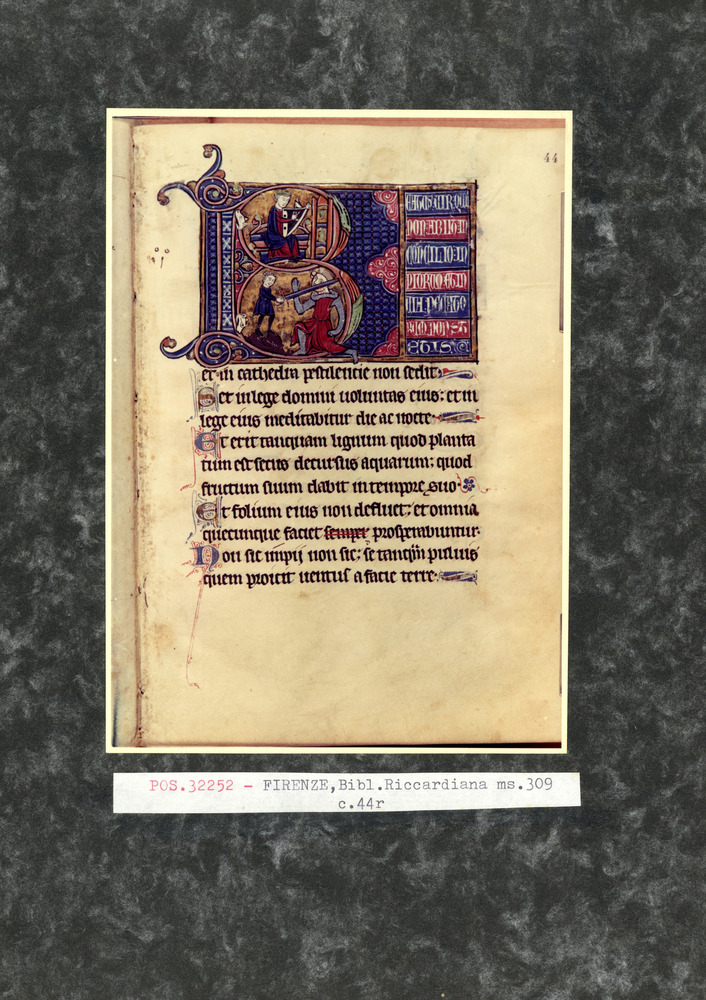 44
EATUS VIR QUI
NON ABIIT IN
CONCILIO IM
PIORUM ET IN
VIA PECCATO
RUM NON ST
ETIT
et in cathedra pestilentie non sedit.
Set in lege domini uoluntas eius: et in
lege eius meditabitur die ac nocte.
Et erit tanquam lignum quod planta
tum est secus decursus aquarum: quod
fructum suum dabit in tempore suo.
Et folium eius non defluet: et omnia
quecumque faciet semper prosperabuntur.
Non sic impij non sic: se tanqm puluis
quem proicit uentus a facie terre.
POS.32252 - FIRENZE,Bibl.Riccardiana ms.309
c.44r